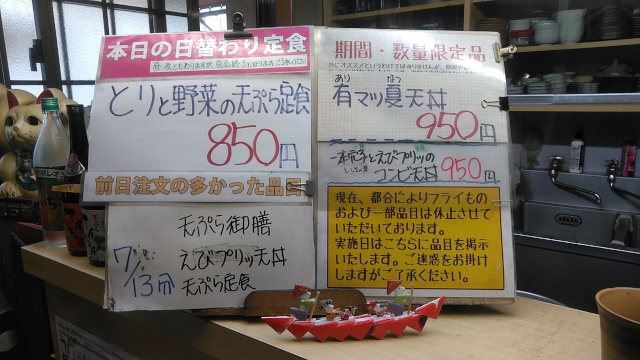 本日の日替わり定食
とりと野菜の天ぷら定食
850円
前日注文の多かった品目
天ぷら御膳
7/13分
えびプリッ天丼
天ぷら定食
期間・数量限定品
有マッ夏天丼
あり
はつ
950円
一本穴子とえびプリッの
コンビ天丼 950円
現在、都合によりフライもの
および一部品目は休止させて
いただいております。
実施日はこちらに品目を掲示
いたします。ご迷惑をお掛け
しますがご了承ください。